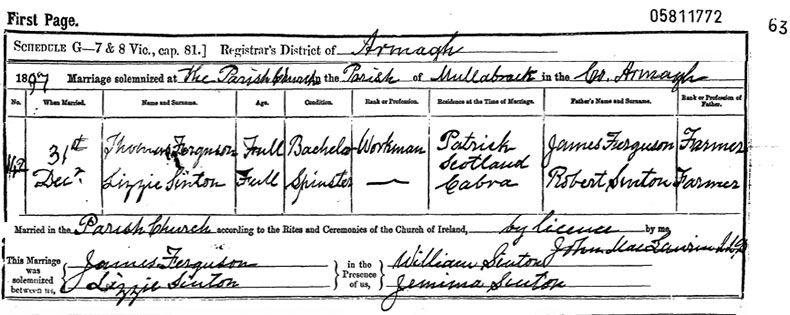 First Page. 05811772 63
SCHEDULE G—7 & 8 Vic., cap. 81.] Registrar's District of Armagh
1897 Marriage solemnized at The Parish Church in the Parish of Mullabrack in the Co. Armagh
No. When Married. Name and Surname. Age. Condition. Rank or Profession. Residence at the Time of Marriage. Father's Name and Surname. Rank or Profession of Father.
142 31st Thomas Ferguson Full Bachelor Workman Patrick James Ferguson Farmer
Scotland
Decr Lizzie Sinton Full Spinster — Cabra Robert Sinton Farmer
Married in the Parish Church according to the Rites and Ceremonies of the Church of Ireland, by licence by me,
John MacLaurin
This Marriage was solemnized between us, James Ferguson in the Presence of us, William Sinton
Lizzie Sinton Jemima Sinton